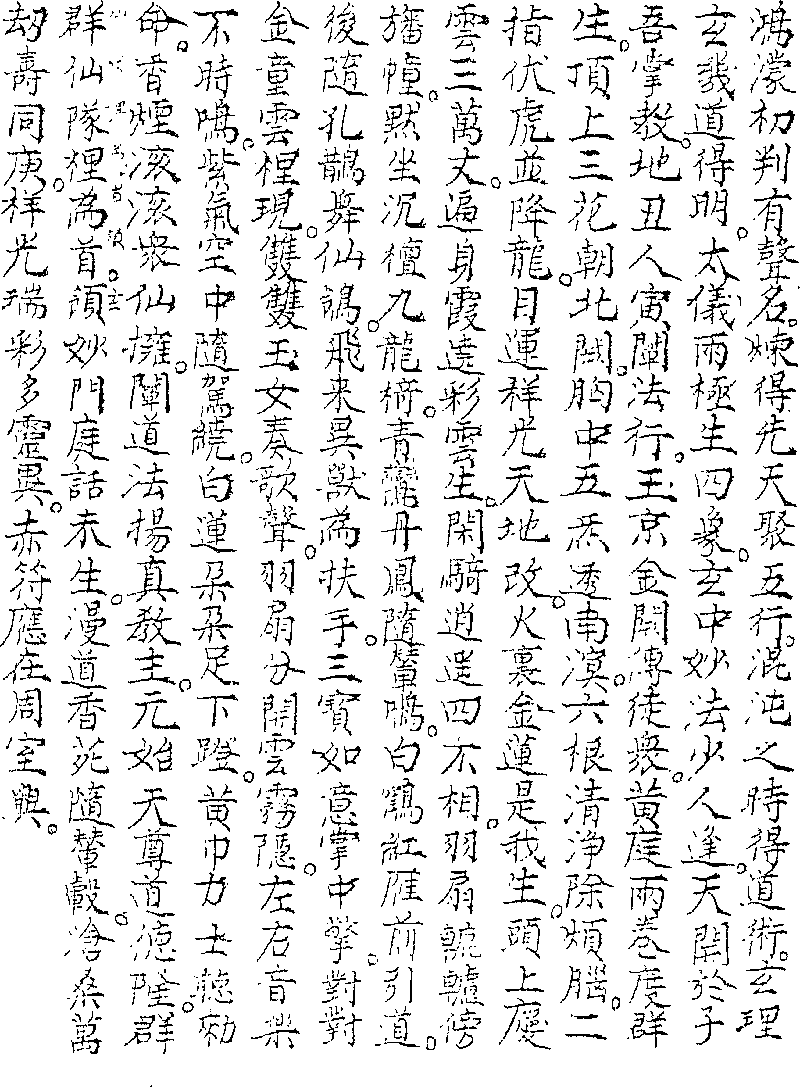 鴻濛初判有聲名。煉得先天聚五行。混沌之時得道術。玄理
玄幾道得明。太儀兩極生四象。玄中妙法少人逢。天開於子
吾掌教。地丑人寅闡法行。玉京金闕傳徒衆。黃庭兩卷度群
生。頂上三花朝北闕。胸中五炁透南溟。六根清净除煩腦。二
指伏虎並降龍。目運祥光天地改。火裏金蓮是我生。頭上慶
雲三萬丈。遍身霞遶彩雲生。閑騎逍遥四不相。羽扇毓轤傍
旛幢。默坐沉檀九龍椅。青鸞丹鳳隨輦鳴。白鶴紅雁前引道。
後隨孔鵲舞仙鶴。飛来異獸為扶手。三寳如意掌中擎。對對
金童雲裡現。雙雙玉女奏歌聲。羽扇分開雲霧隱。左右音樂
不時鳴。紫氣空中隨駕繞。白蓮朵朵足下蹬。黃巾力士聽勑
命。香煙滚滚衆仙擁。闡道法揚真教主。元始天尊道德隆。群
群仙隊裡為首領。妙門庭話未生。漫道香苑隨輦轂。滄桑萬
劫壽同庚。祥光瑞彩多靈異。赤符應在周室興。